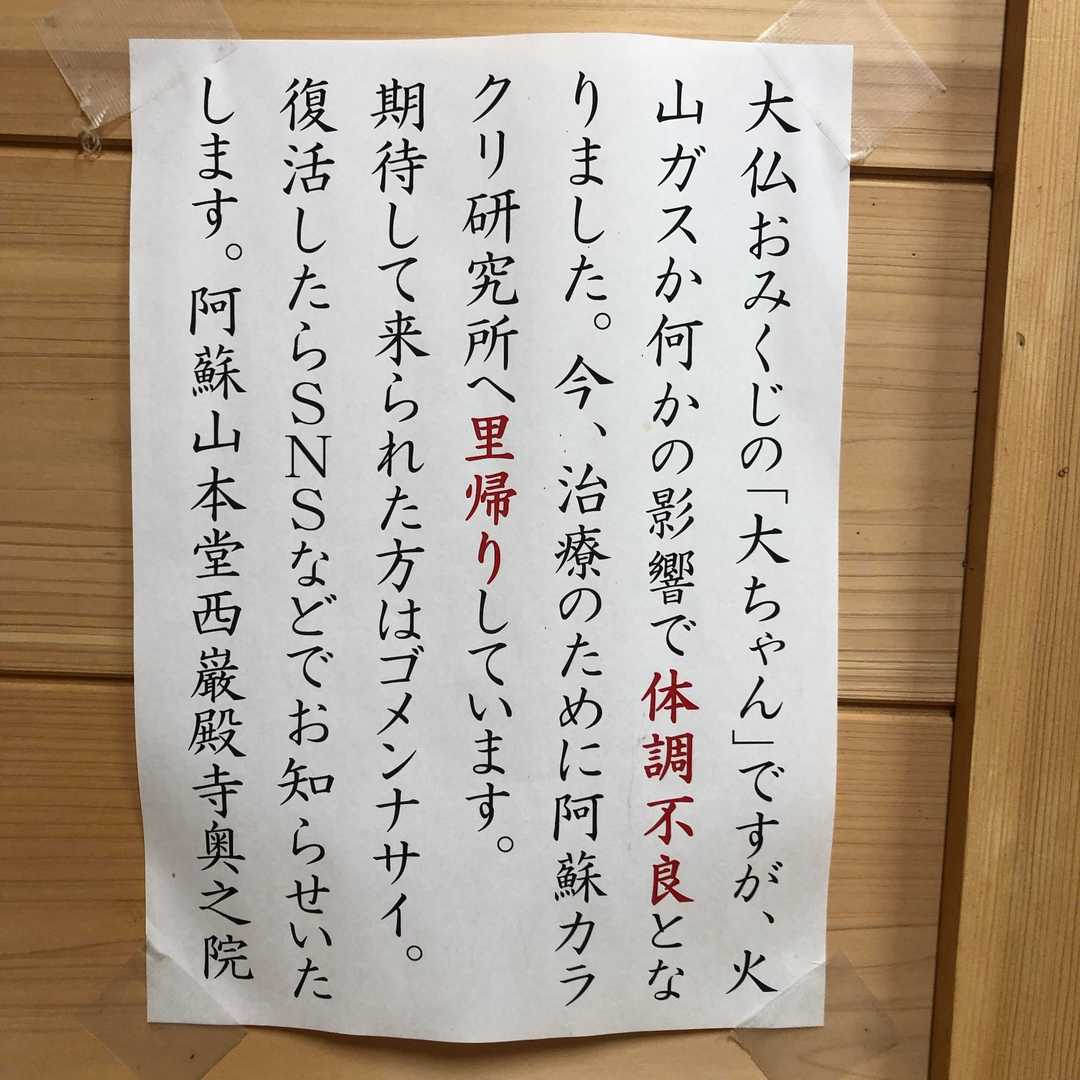 大仏おみくじの「大ちゃん」ですが、火
山ガスか何かの影響で体調不良とな
りました。今、治療のために阿蘇カラ
クリ研究所へ里帰りしています。
期待して来られた方はゴメンナサイ。
復活したらSNSなどでお知らせいた
します。阿蘇山本堂西巌殿寺奥之院